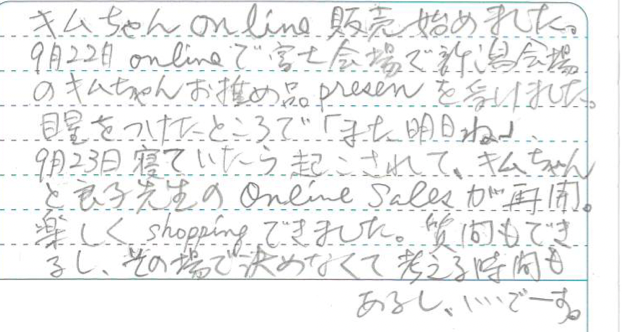 キムちゃん online 販売始めました。
9月22日 onlineで富士会場で新潟会場
のキムちゃんお推め品 presen を受けました。
目星をつけたところで「また明日ね」、
9月23日寝ていたら起こされて、キムちゃん
と良子先生の Online Sales が再開。
楽しく shopping できました。質問もでき
るし、その場で決めなくて考える時間も
あるし、いいでーす。